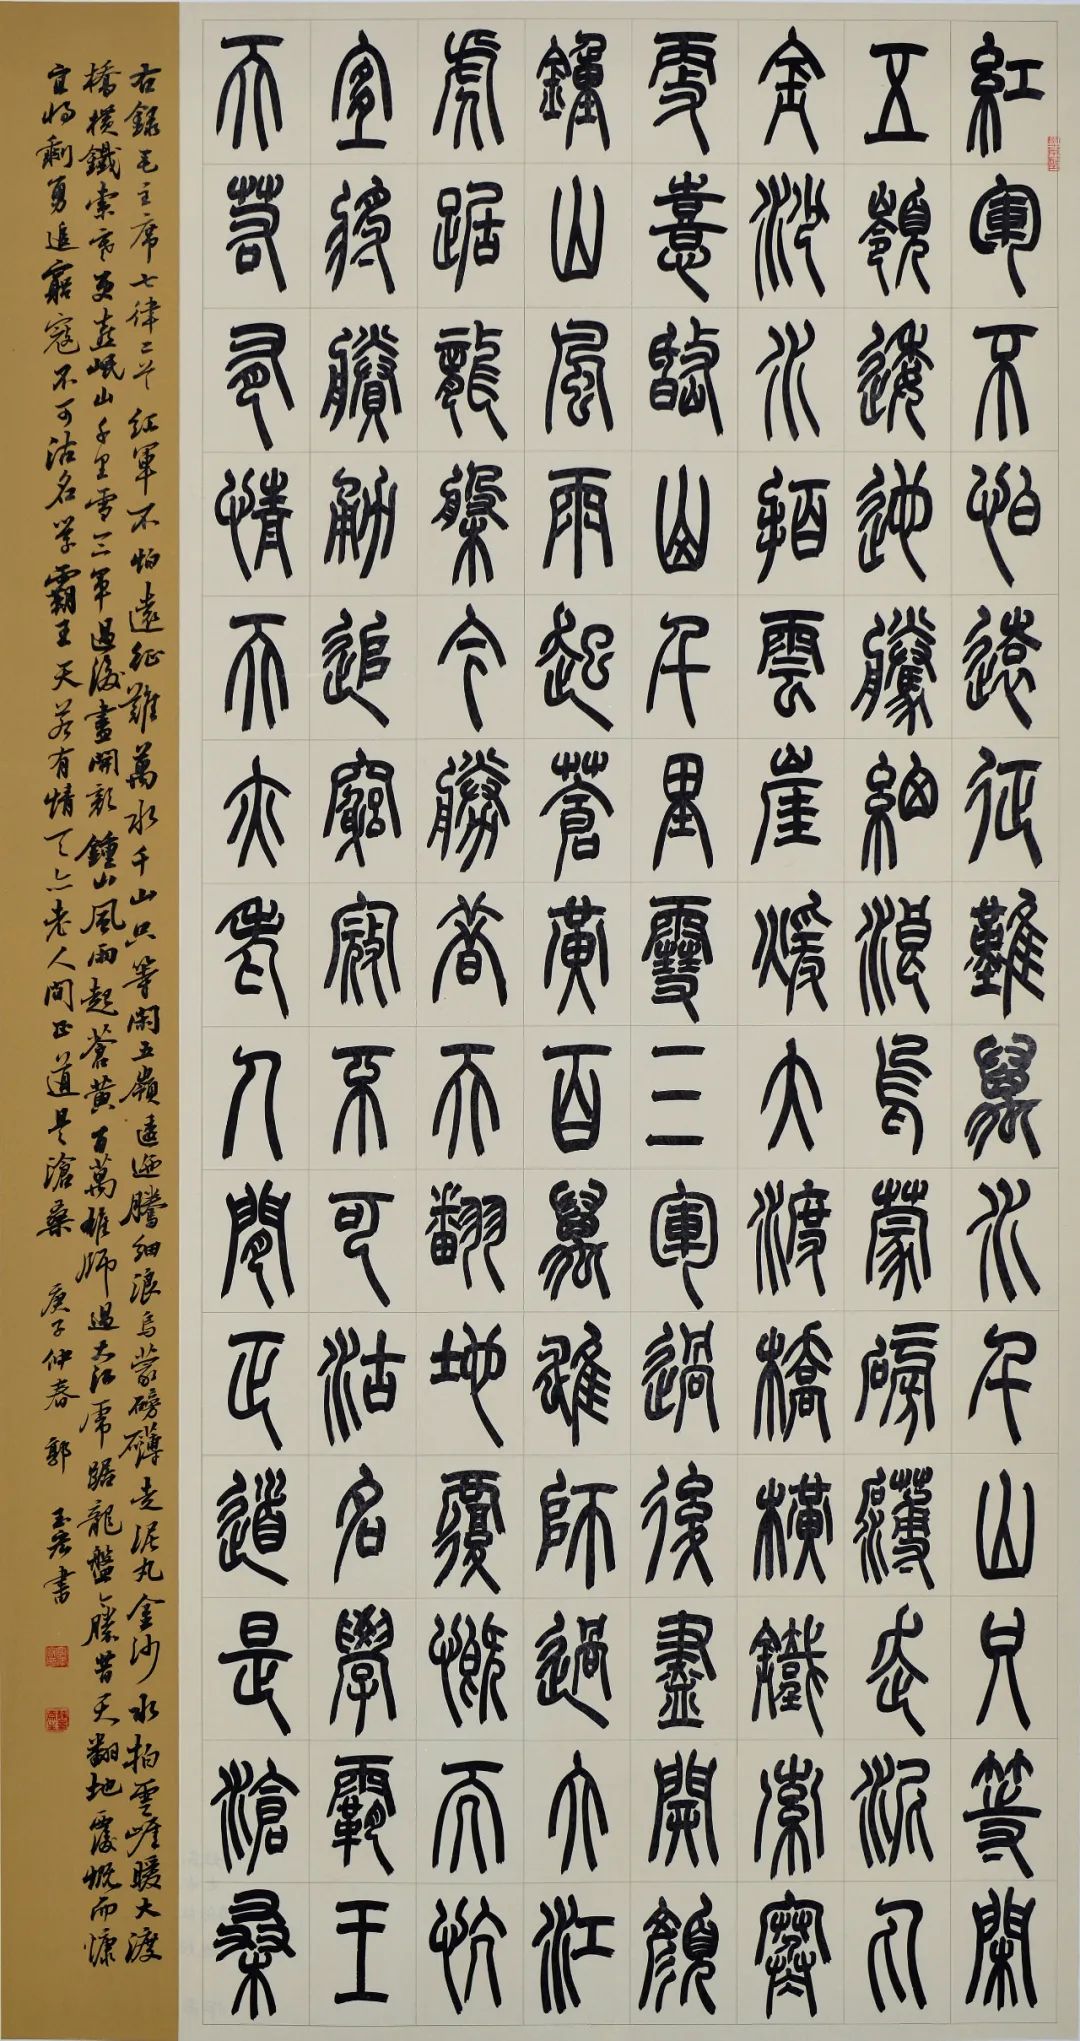 紅軍不怕遠征難萬水千山只等閑
五嶺逶迤騰細浪烏蒙磅礴走泥丸
金沙水拍雲崖暖大渡橋橫鐵索寒
更喜岷山千里雪三軍過後盡開顏
鐘山風雨起蒼黃百萬雄師過大江
虎踞龍盤今勝昔天翻地覆慨而慷
宜將剩勇追窮寇不可沽名學霸王
天若有情天亦老人間正道是滄桑
右錄毛主席七律二首 紅軍不怕遠征難萬水千山只等閑五嶺逶迤騰細浪烏蒙磅礴走泥丸金沙水拍雲崖暖大渡
橋橫鐵索寒更喜岷山千里雪三軍過後盡開顏鍾山風雨起蒼黃百萬雄師過大江虎踞龍盤今勝昔天翻地覆慨而慷
宜將剩勇追窮寇不可沽名學霸王天若有情天亦老人間正道是滄桑 庚子仲春 郭玉宏書